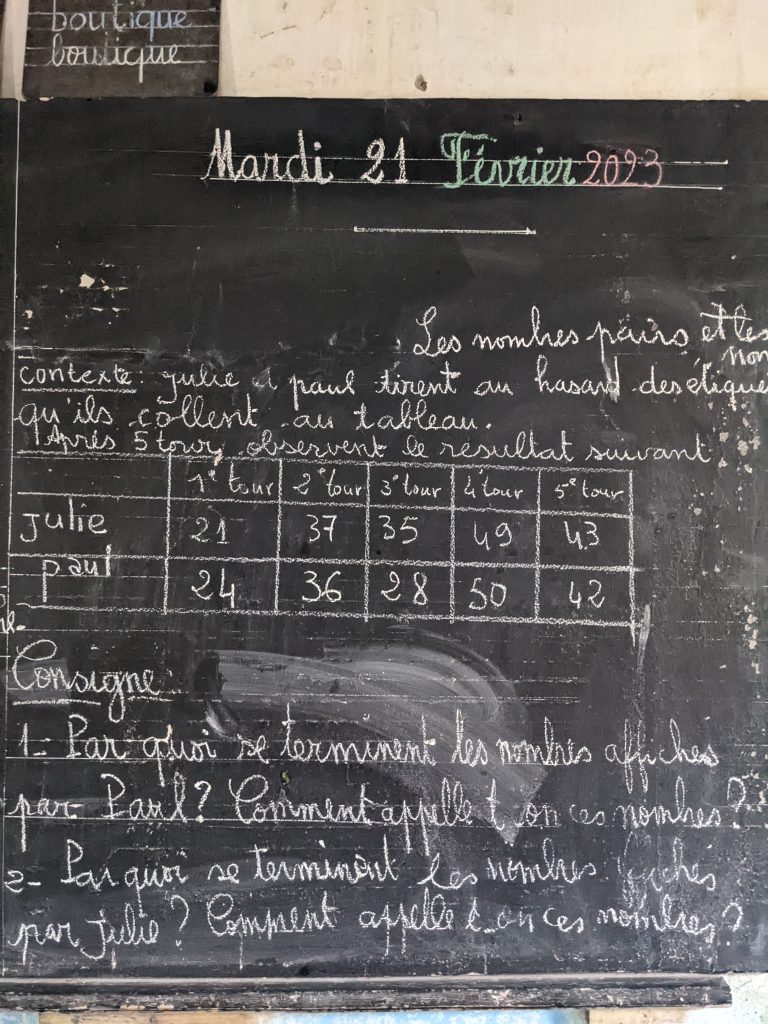 boutique
boutique
Mardi 21 Février 2023
Les nombres pairs et les
non
contexte : julie et paul tirent au hasard des étique
qu'ils collent au tableau.
Après 5 tour, observent le résultat suivant
1e tour 2e tour 3e tour 4e tour 5e tour
julie 21 37 35 49 43
paul 24 36 28 50 42
Consigne :
1- Par quoi se terminent les nombres affichés
par Paul ? Comment appelle t on ces nombres ?
2- Par quoi se terminent les nombres
par julie ? Comment appelle t-on ces nombres ?